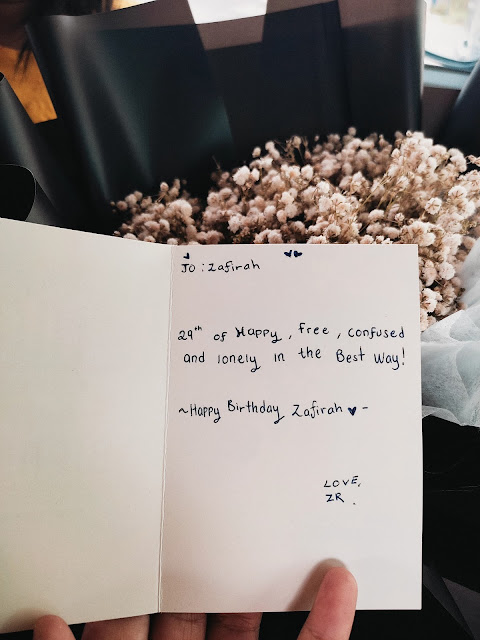 To : Zafirah
29th of Happy, free, confused
and lonely in the Best Way!
~Happy Birthday Zafirah ♥ -
LOVE,
ZR .